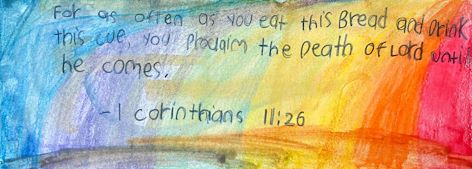 For as often as you eat this Bread and Drink
this cue, you proclaim the Death of Lord until
he comes.
- 1 corinthians 11:26